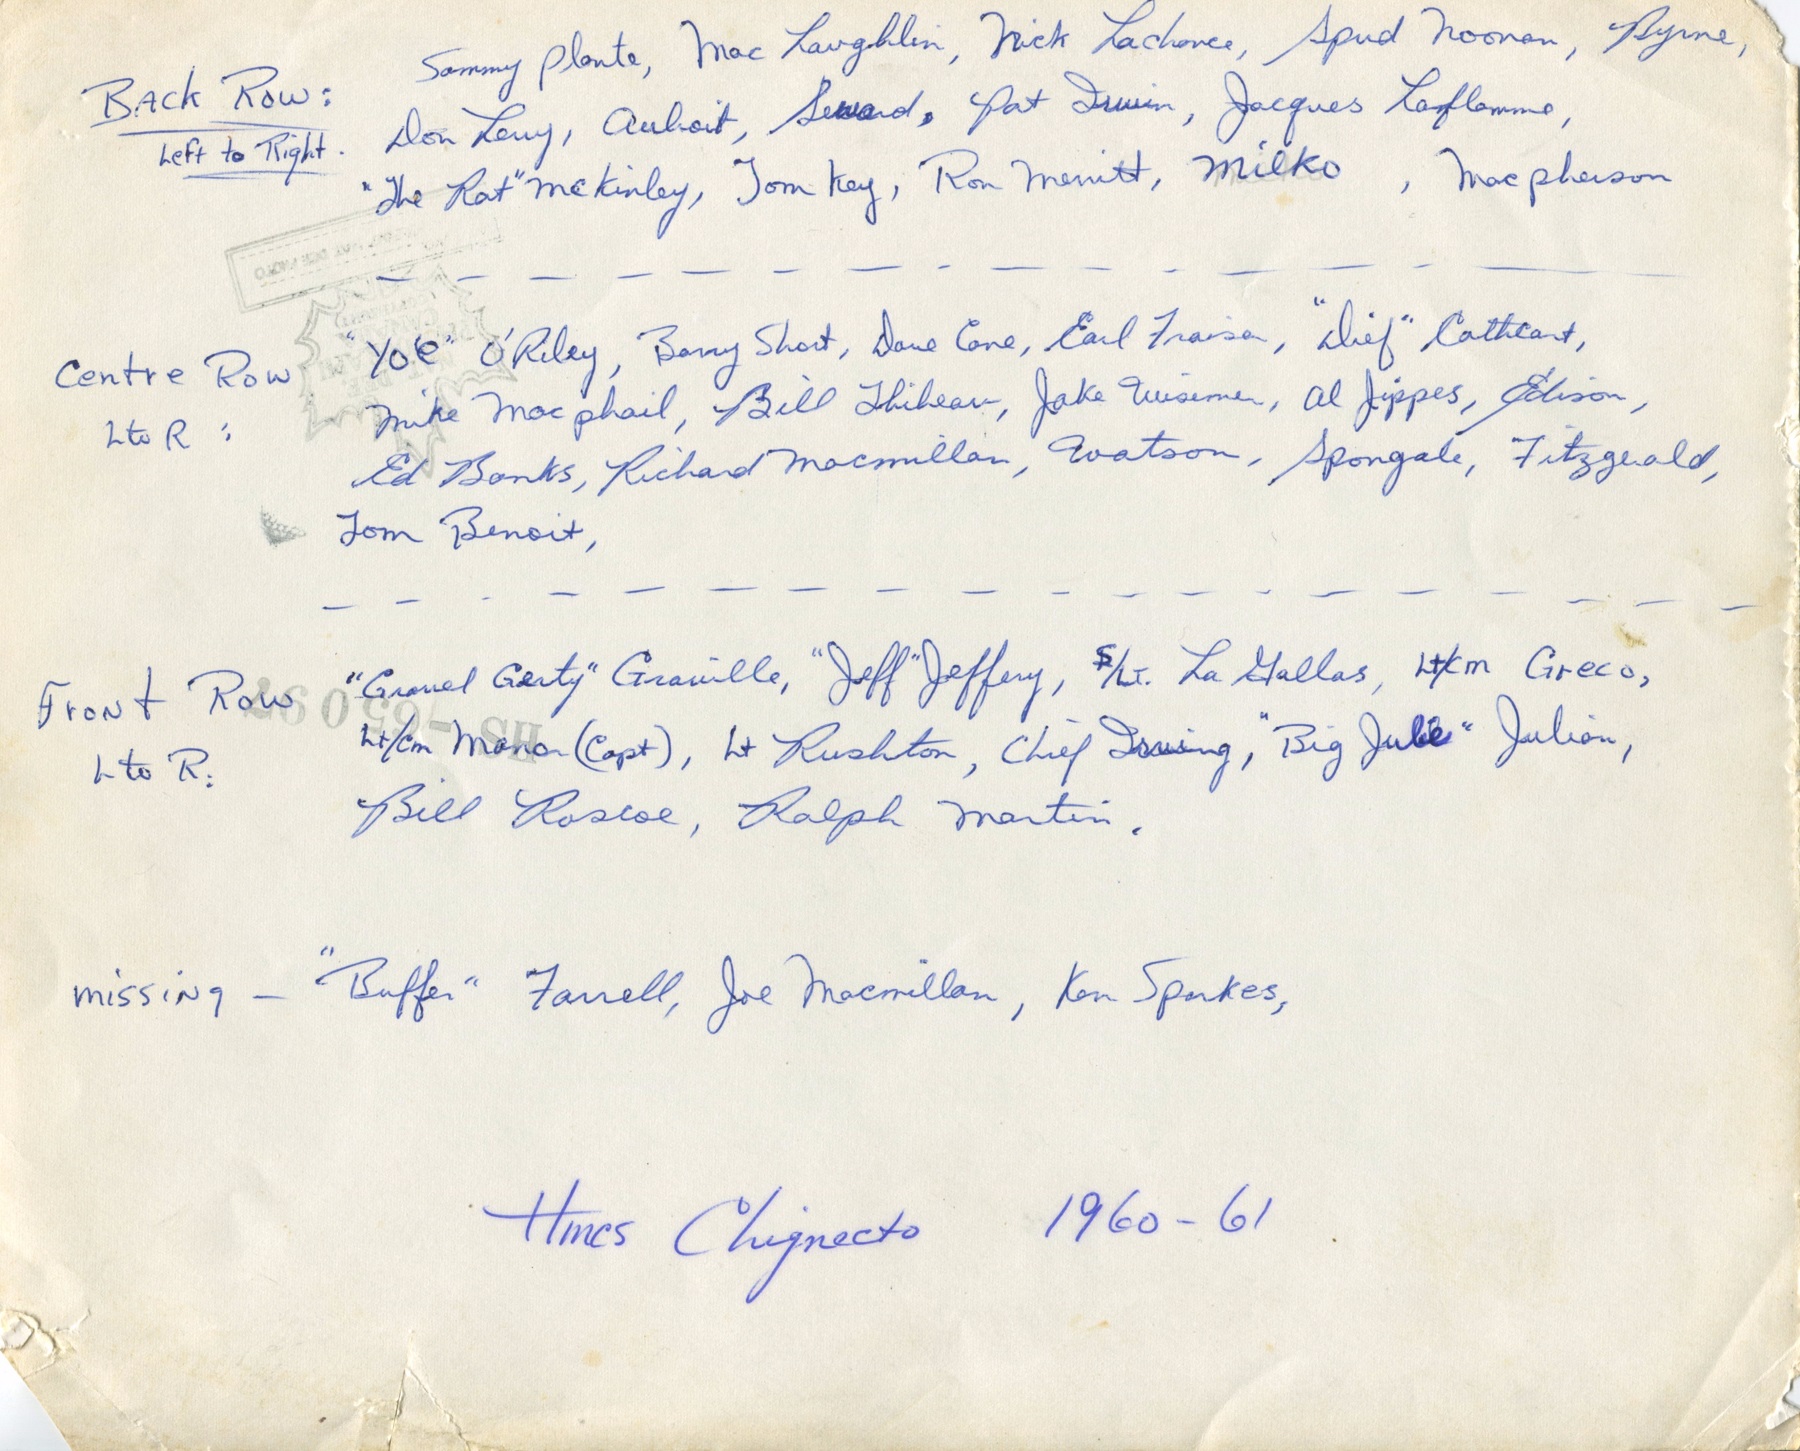 Back Row: Sammy Plante, Mac Laughlin, Nick Lachance, Spud Noonan, Byrne,
Left to Right. Don Levy, Auboit, Seward, Pat Irwin, Jacques Laflamme,
"The Rat" McKinley, Tom Key, Ron Merritt, Milko, Macpherson
Centre Row "Yo'e" O'Riley, Barry Short, Dave Cane, Earl Fraiser, "Dief" Cathcart,
L to R: Mike Macphail, Bill Thibeau, Jake Wiseman, Al Jippes, Edison,
Ed Banks, Richard Macmillan, Watson, Spongale, Fitzgerald,
Tom Benoit,
Front Row "Gravel Gerty" Graville, "Jeff" Jeffery, S/Lt. La Gallas, Lt/Cm Greco,
L to R: Lt/Cm Manor (Capt), Lt Rushton, Chief Irwing, "Big Julie" Julian,
Bill Roscoe, Ralph Martin.
missing - "Buffer" Farrell, Joe Macmillan, Ken Sparkes,
HMCS Chignecto 1960-61